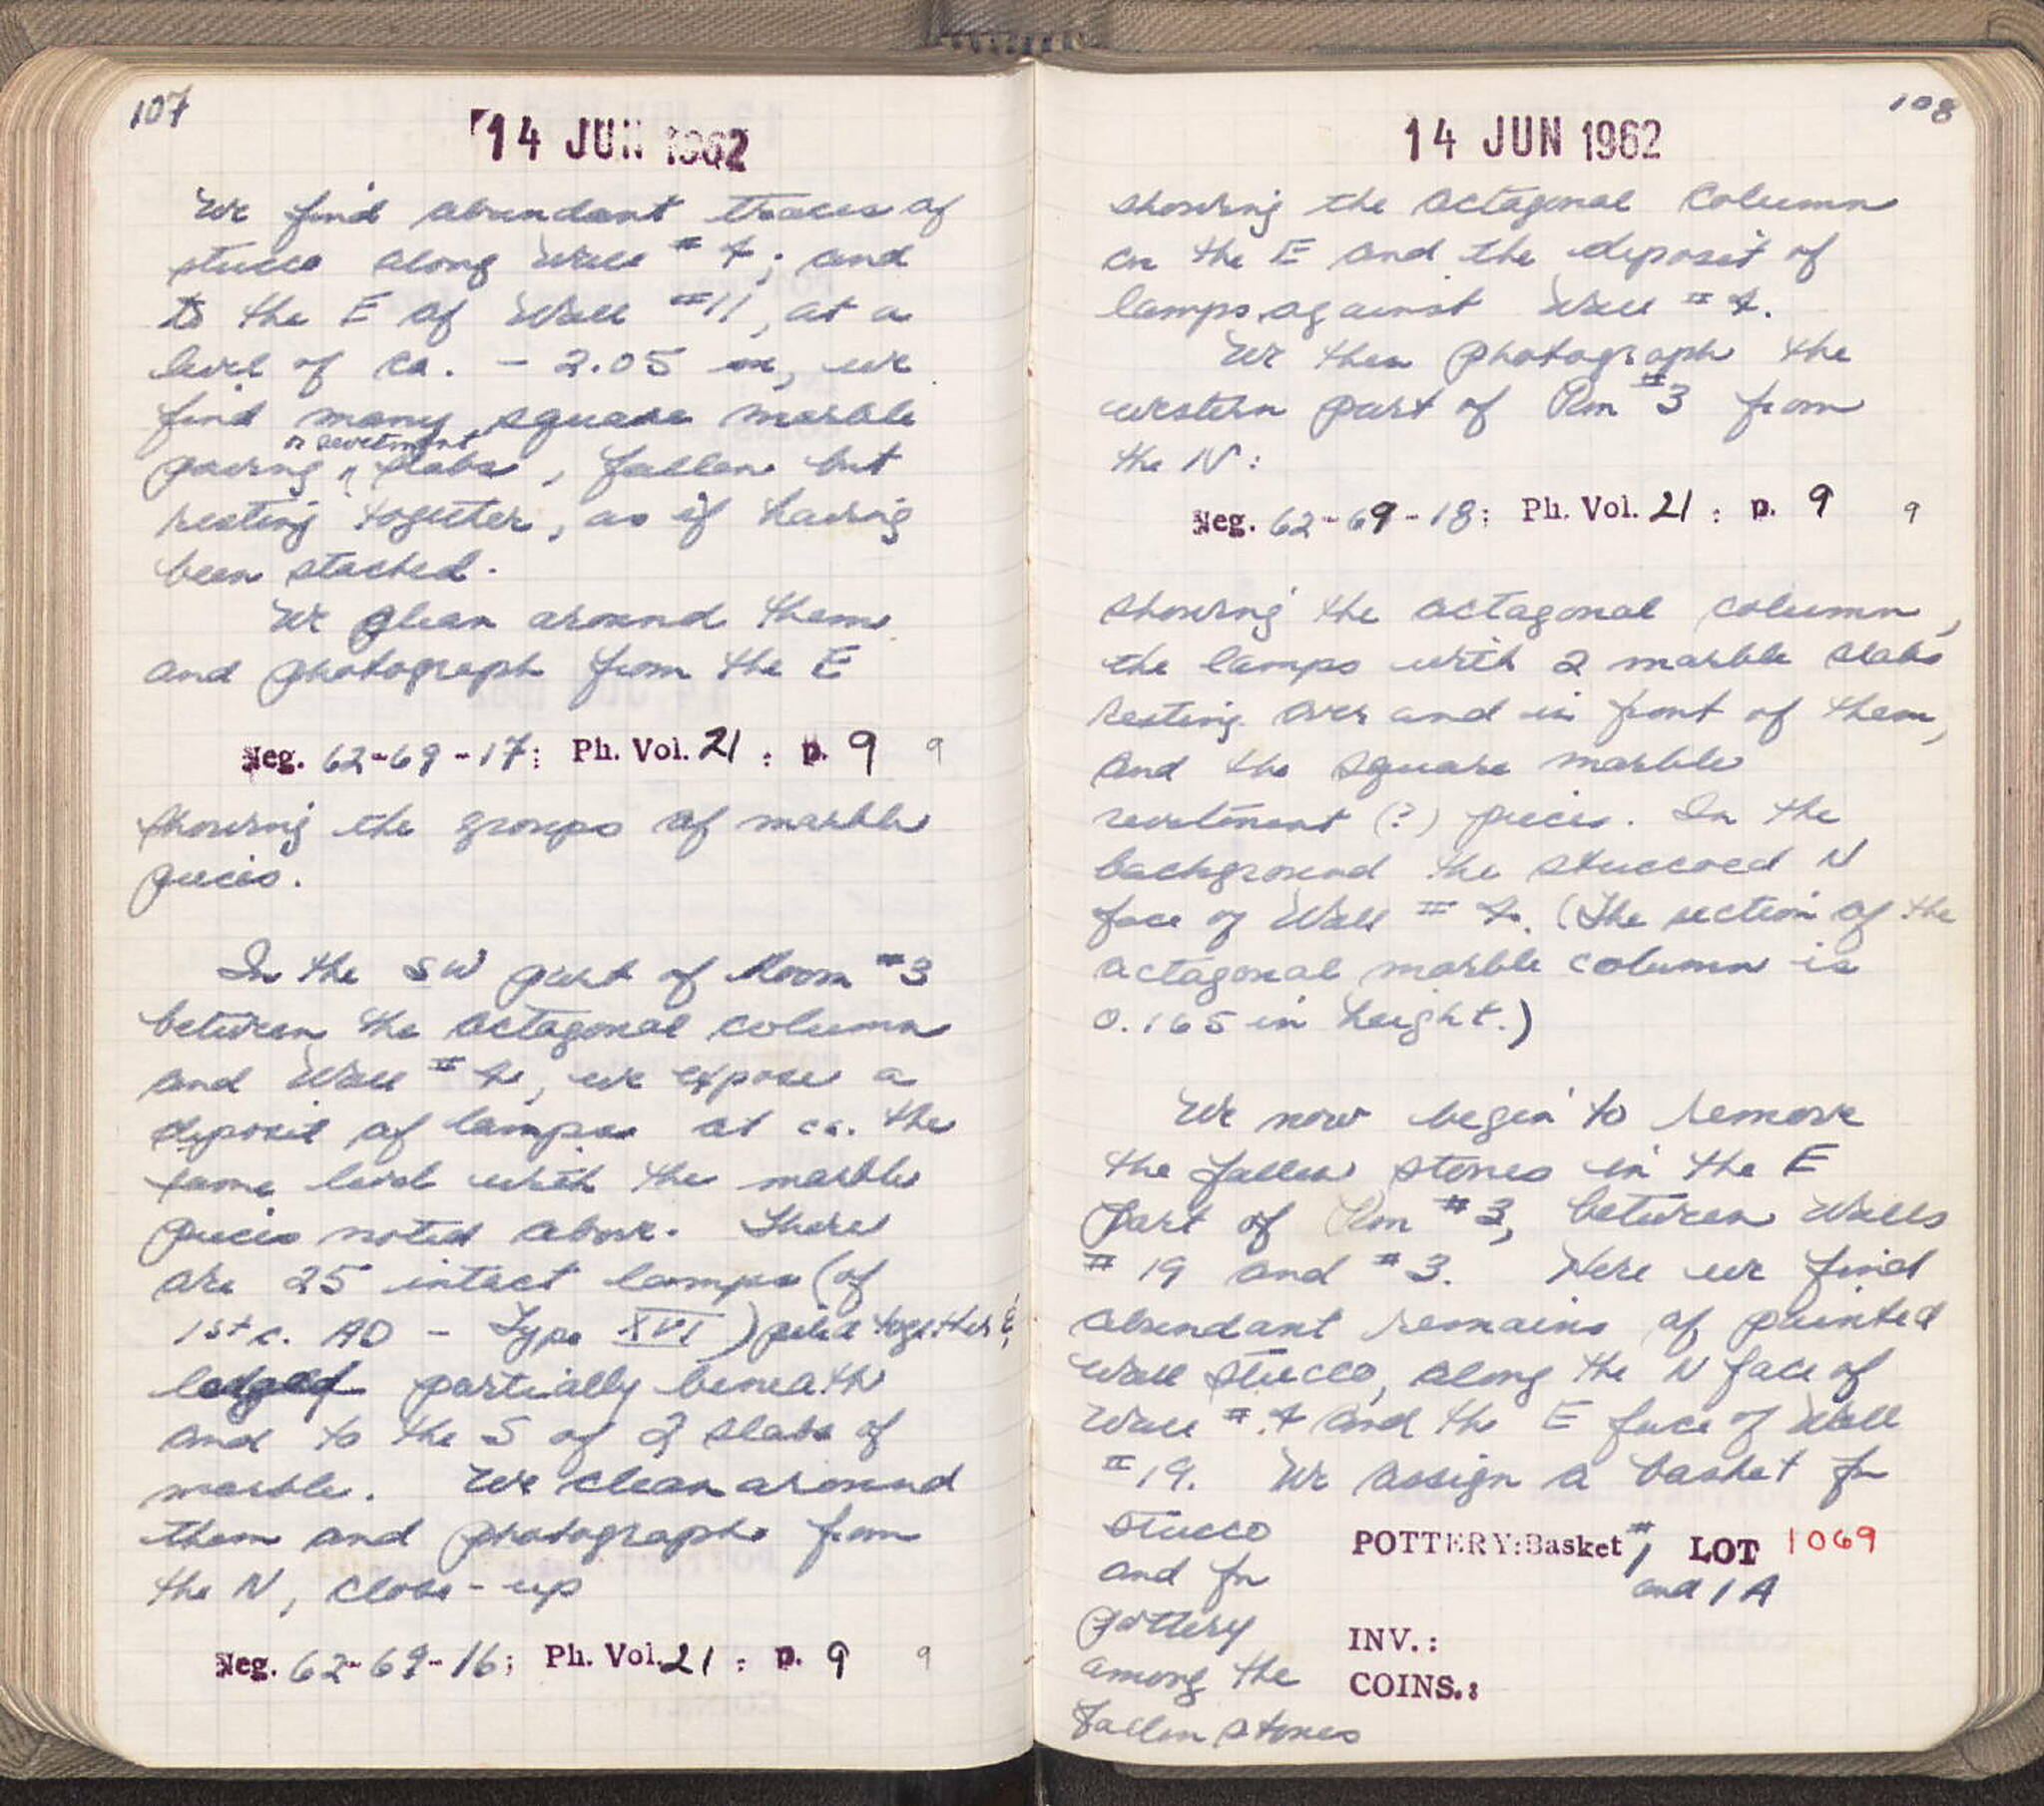 107
14 JUN 1962
We find abundant traces of
stucco along Wall #4; and
to the E of Wall #11, at a
level of ca. - 2.05 m, we
find many square marble
or revetment
paving ^ slabs, fallen but
resting together, as if having
been stacked.
We clean around them
and photograph from the E
Neg. 62-69-17; Ph. Vol. 21 : p. 9 9
showing the groups of marble
pieces.
In the SW part of Room #3
between the octagonal column
and Wall #4, we expose a
deposit of lamps at ca. the
same level with the marble
pieces noted above. There
are 25 intact lamps (of
1st c. AD - Type XVI) piled together &
lodged partially beneath
and to the S of 2 slabs of
marble. We clean around
them and photograph from
the N, close-up
Neg. 62-69-16; Ph. Vol. 21 : p. 9 9
108
14 JUN 1962
showing the octagonal column
on the E and the deposit of
lamps against Wall #4.
We then photograph the
western part of Rm #3 from
the N:
Neg. 62-69-18; Ph. Vol. 21 : p. 9 9
showing the octagonal column,
the lamps with 2 marble slabs
resting over and in front of them,
and the square marble
revetment (?) pieces. In the
background the stuccoed N
face of Wall #4. (The section of the
octagonal marble column is
0.165 in height.)
We now begin to remove
the fallen stones in the E
part of Rm #3, between Walls
#19 and #3. Here we find
abundant remains of painted
wall stucco, along the N face of
Wall #4 and the E face of Wall
#19. We assign a basket for
stucco POTTERY: Basket #1, LOT 1069
and for and 1A
pottery INV.:
among the COINS.:
fallen stones